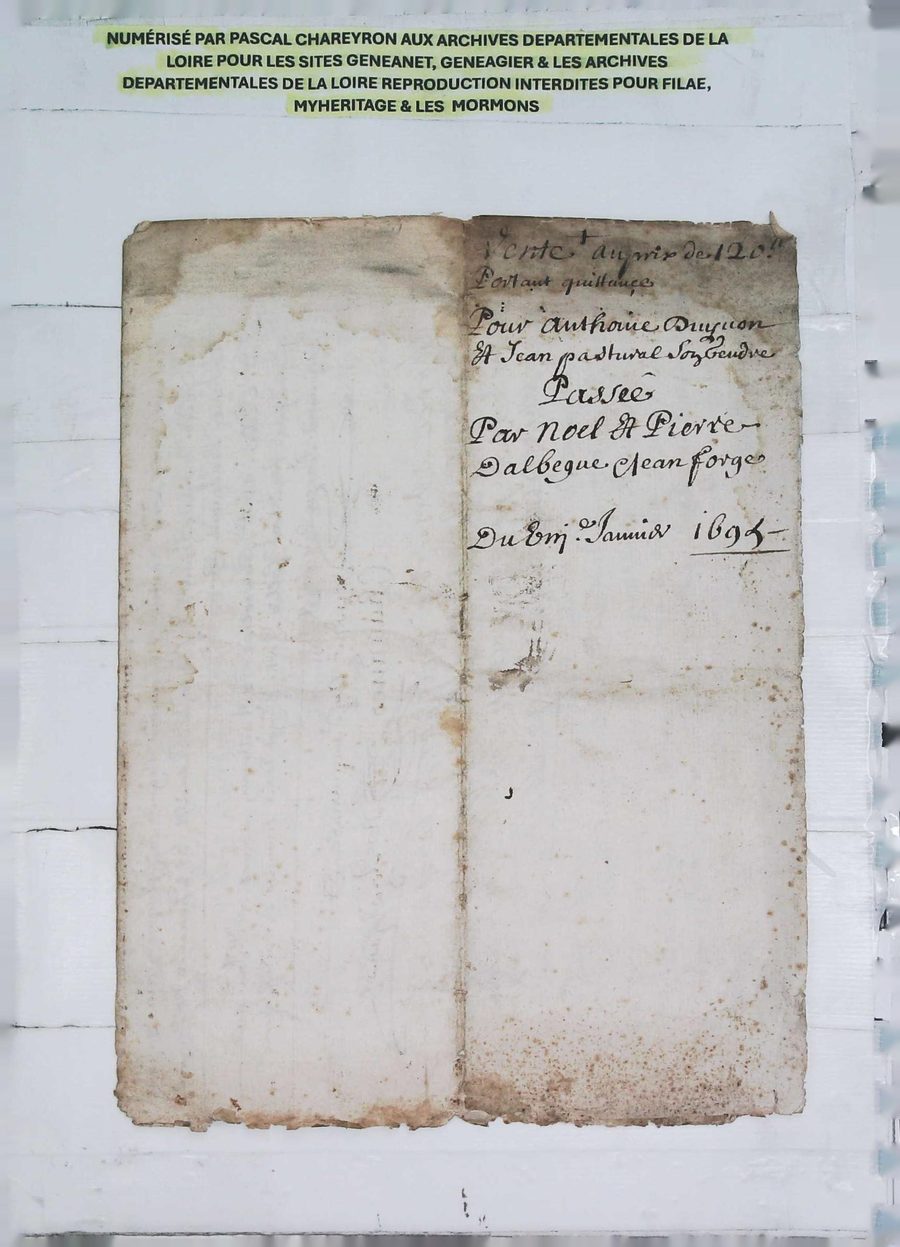 NUMÉRISÉ PAR PASCAL CHAREYRON AUX ARCHIVES DEPARTEMENTALES DE LA
LOIRE POUR LES SITES GENEANET, GENEAGIER & LES ARCHIVES
DEPARTEMENTALES DE LA LOIRE REPRODUCTION INTERDITES POUR FILAE,
MYHERITAGE & LES MORMONS
Vente au prix de 120ll
Portant quittance
Pour anthoine
Et Jean pastural Son Gendre
Passée
Par Noel Et Pierre
Dalbegue Jean forge
Du Janvier